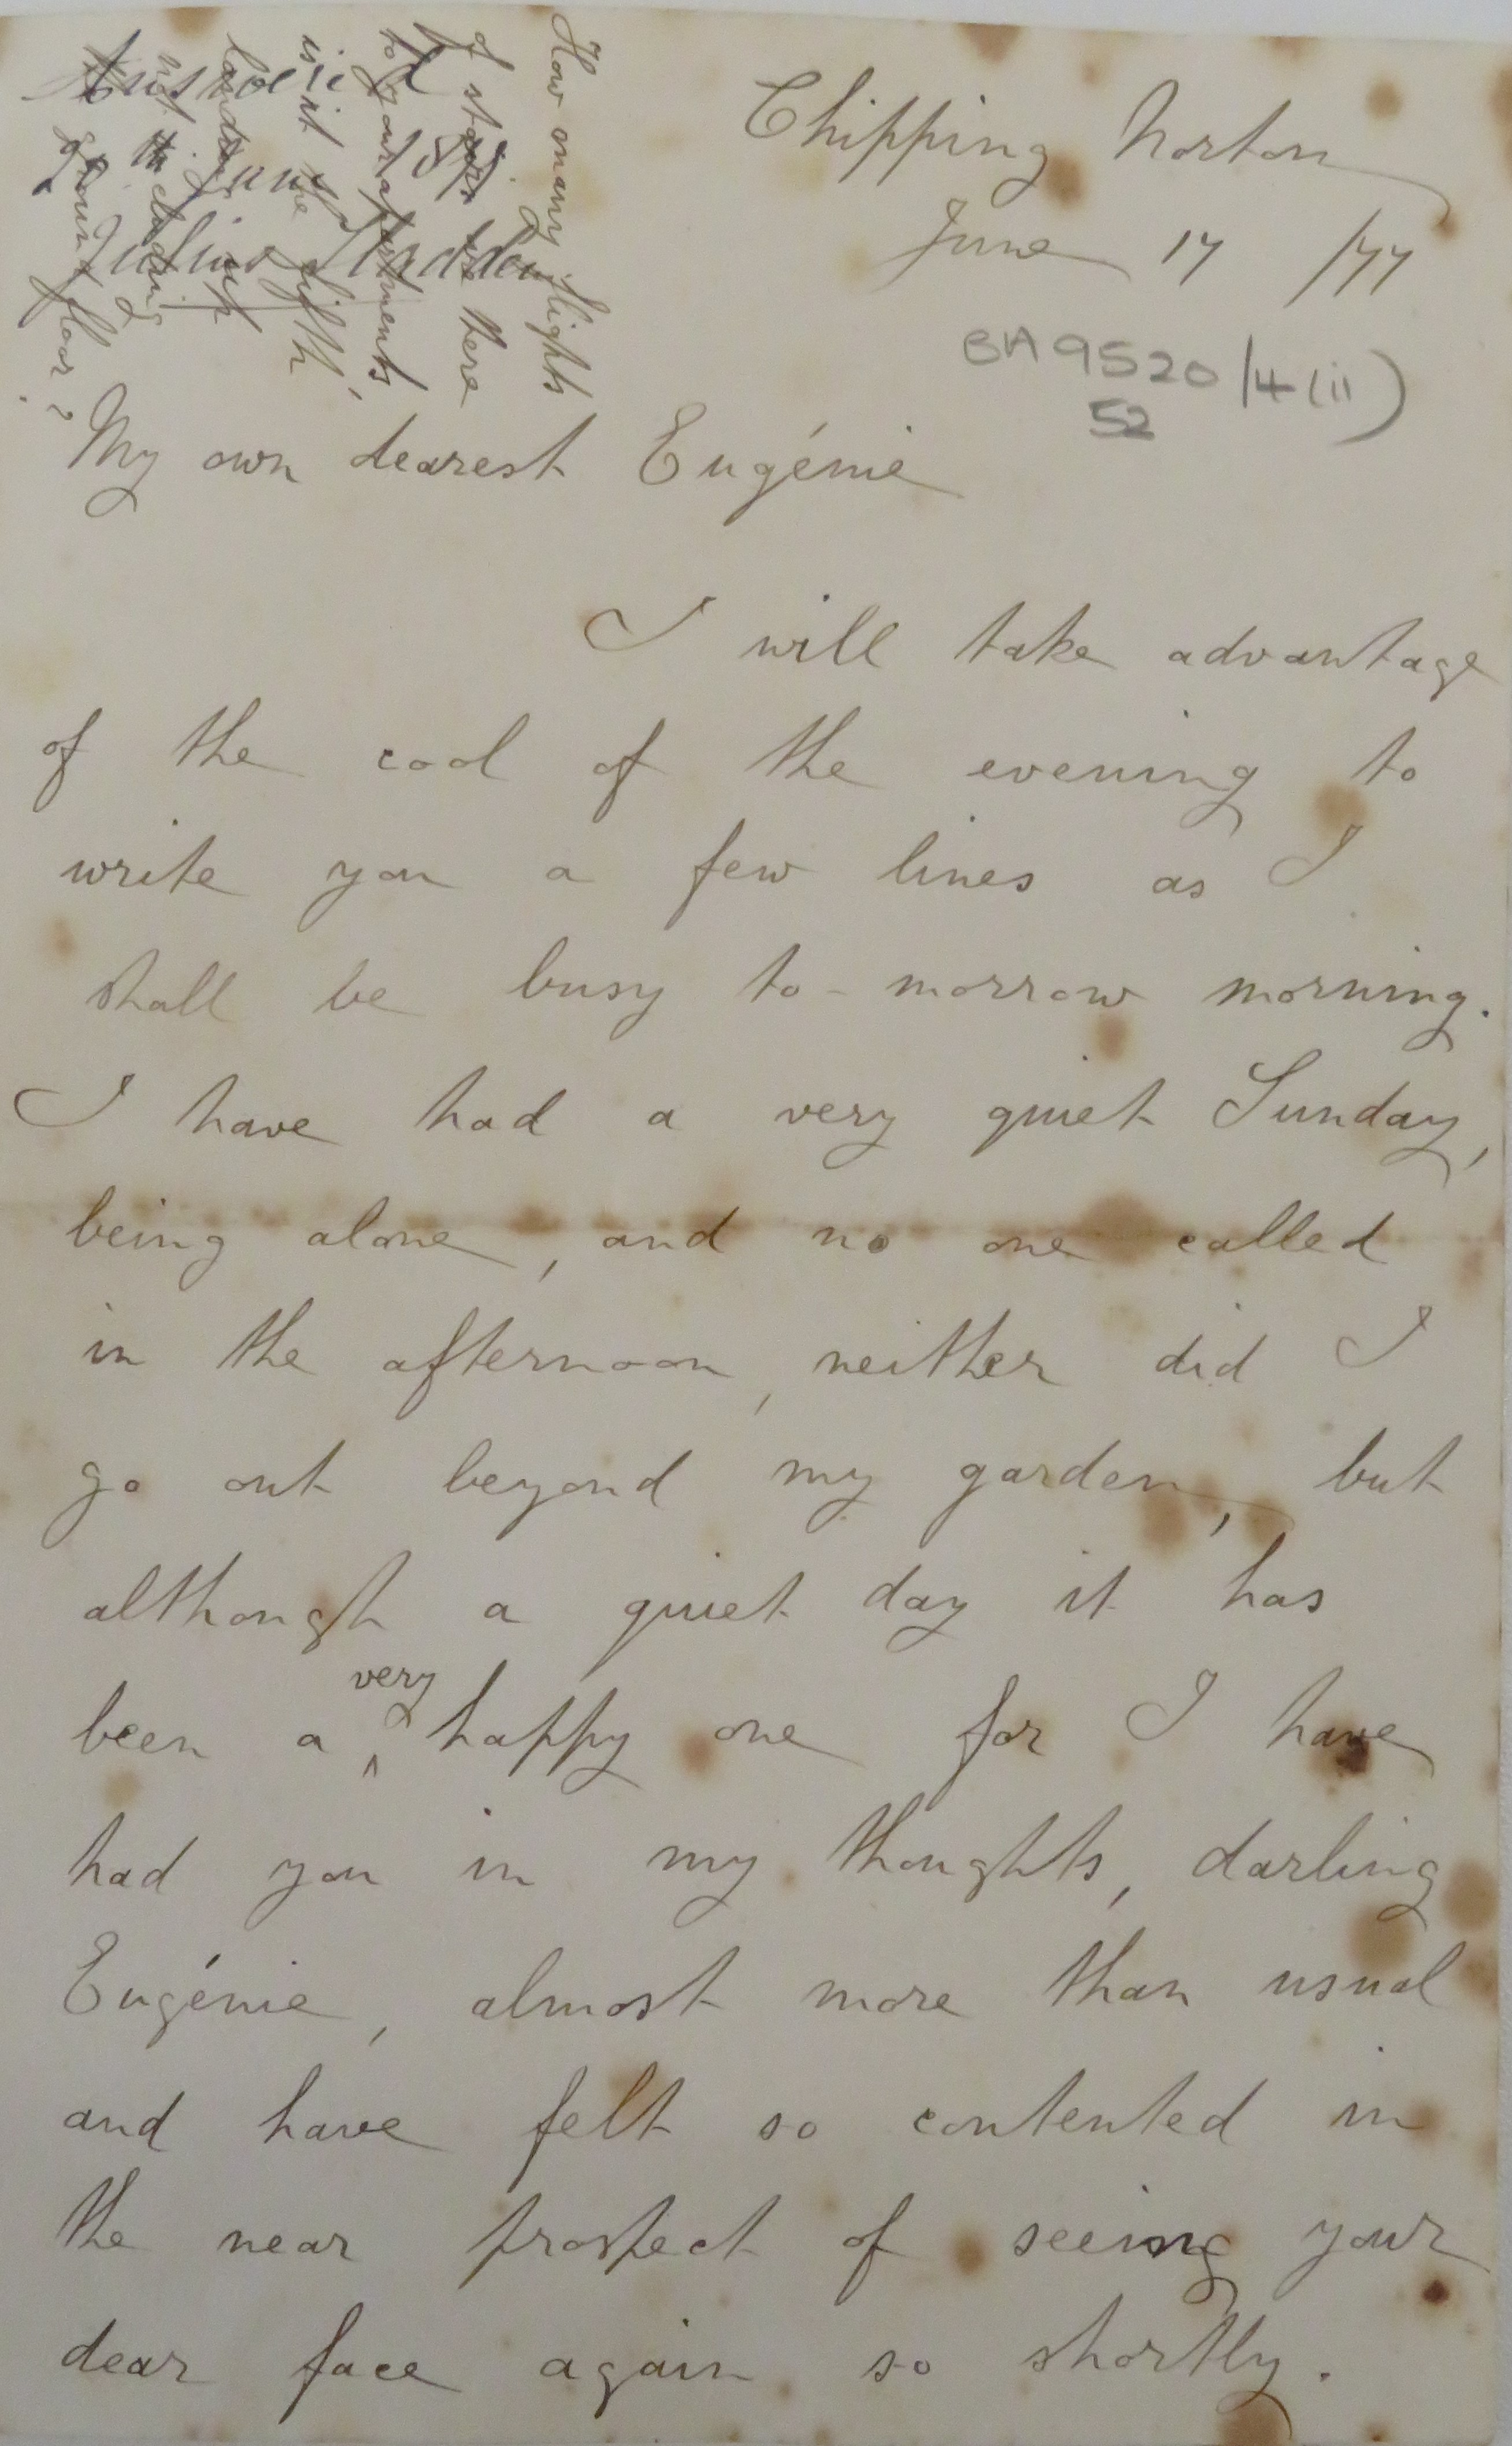 How many flights
of stairs are there
to your apartments
is it the fifth,
landing
not including
ground floor?
Answered
June 18
Julius Sladden
Chipping Norton
June 17 /77
BA 9520/4(ii)
52
My own dearest Eugénie
I will take advantage
of the cool of the evening to
write you a few lines as I
shall be busy to-morrow morning.
I have had a very quiet Sunday,
being alone, and no one called
in the afternoon, neither did I
go out beyond my garden, but
although a quiet day it has
been a very happy one for I have
had you in my thoughts, darling
Eugénie, almost more than usual
and have felt so contented in
the near prospect of seeing your
dear face again so shortly.